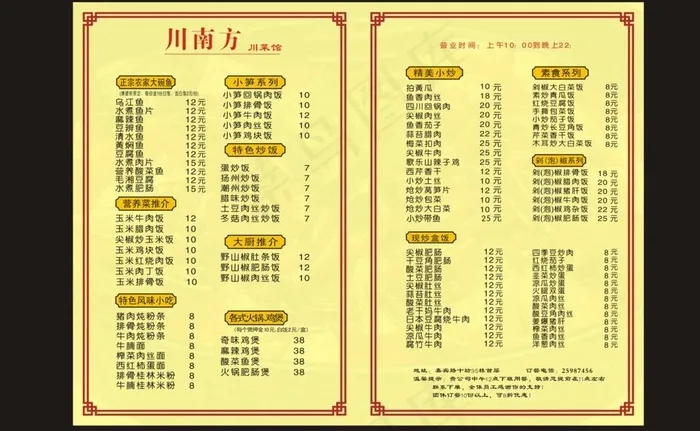 川南方 川菜馆
正宗农家大碗鱼
乌江鱼 12元
水煮鱼片 12元
麻辣鱼 12元
豆辨鱼 12元
清水鱼 12元
黄焖鱼 12元
豆腐鱼 12元
水煮肉片 15元
营养酸菜鱼 12元
毛湘豆腐 12元
水煮肥肠 15元
营养菜推介
玉米牛肉饭 12
玉米腊肉饭 10
尖椒炒玉米饭 10
玉米鸡块饭 10
玉米烧肉饭 10
玉米肉丁饭 10
玉米排骨饭 10
特色风味小吃
猪肉炖粉条 8
排骨炖粉条 8
牛肉炖粉条 8
牛腩面 8
榨菜肉丝面 8
西红柿蛋面 8
排骨桂林米粉 8
牛腩桂林米粉 8
小笋系列
小笋回锅肉饭 10
小笋排骨饭 10
小笋牛肉饭 12
小笋肉丝饭 10
小笋鸡块饭 10
特色炒饭
蛋炒饭 7
扬州炒饭 7
潮州炒饭 7
腊味炒饭 7
土豆肉丝炒饭 7
冬菇肉丝炒饭 7
大厨推介
野山椒肚条饭 12
野山椒肥肠饭 12
野山椒肉丝饭 10
各式火锅.鸡煲
(每个煲押金10元,白饭2元/盒)
奇味鸡煲 38
麻辣鸡煲 38
酸菜鱼煲 38
火锅肥肠煲 38
营业时间: 上午10: 00到晚上22:
精美小炒
拍黄瓜 10元
鱼香肉丝 18元
四川回锅肉 20元
尖椒肉丝 20元
鱼香茄子 20元
蒜苔腊肉 22元
梅菜扣肉 25元
尖椒牛肉 25元
歌乐山辣子鸡 25元
西芹香干 12元
小炒土丝 10元
炝炒莴笋片 12元
炝炒包菜 10元
炝炒大白菜 10元
小炒带鱼 25元
素食系列
剁椒大白菜饭 8元
素炒黄瓜饭 8元
红烧豆腐饭 8元
手撕包菜饭 8元
小炒茄子饭 8元
青炒长豆角饭 8元
芹菜香干饭 8元
木耳炒大白菜饭 8元
剁(泡)椒系列
剁(泡)椒排骨饭 18元
剁(泡)椒腊肉饭 20元
剁(泡)椒猪肝饭 20元
剁(泡)椒牛肉饭 20元
剁(泡)椒鸡杂饭 22元
剁(泡)椒肥肠饭 25元
现炒盒饭
尖椒肥肠 12元
干豆角肥肠 12元
酸菜肥肠 12元
土豆肥肠 12元
尖椒肚丝 12元
蒜苔肚丝 12元
酸菜肚丝 12元
老干妈牛肉 12元
日本豆腐烧牛肉 12元
尖椒牛肉 12元
凉瓜牛肉 12元
腐竹牛肉 12元
四季豆炒肉 8元
红烧茄子 8元
西红柿炒蛋 8元
韭菜炒蛋 8元
凉瓜炒蛋 8元
火腿双蛋 8元
凉瓜肉丝 8元
酸菜肉丝 8元
酸豆角肉丝 8元
姜爆猪肝 8元
榨菜肉丝 8元
鱼香肉丝 8元
洋葱肉丝 8元
订餐电话: 25987456